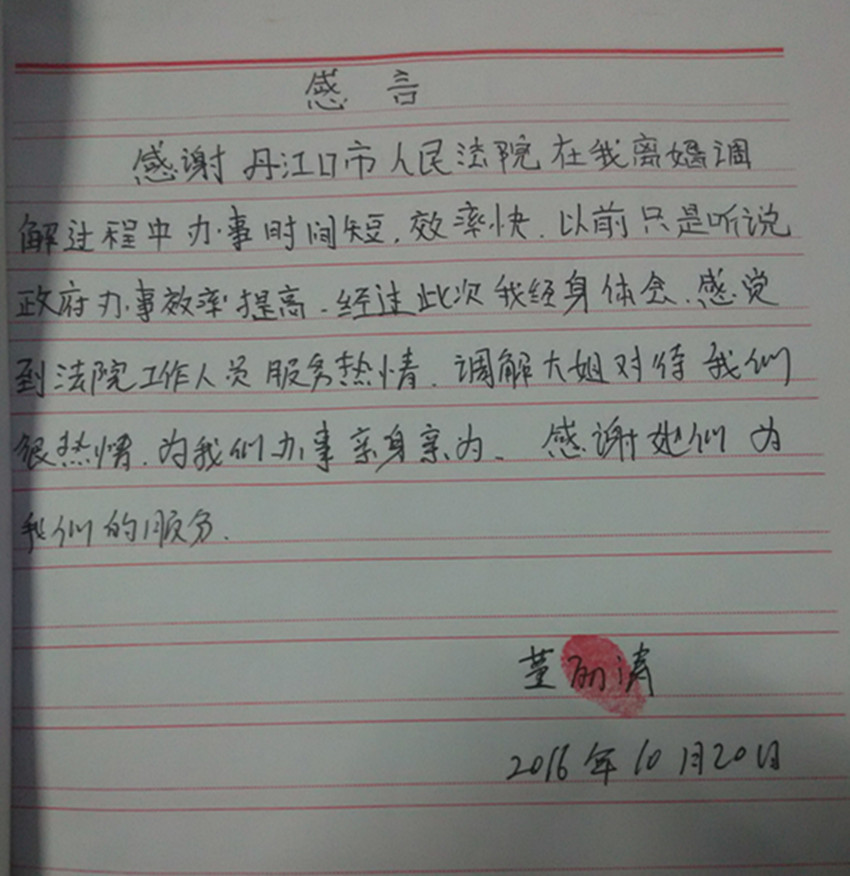 感言
感谢丹江口市人民法院在我离婚调
解过程中办事时间短,效率快.以前只是听说
政府办事效率提高.经过此次我经身体会、感觉
到法院工作人员服务热情.调解大姐对待我们
很热情.为我们办事亲身亲为、感谢她们为
我们的服务.
董丽涛
2016年10月20日